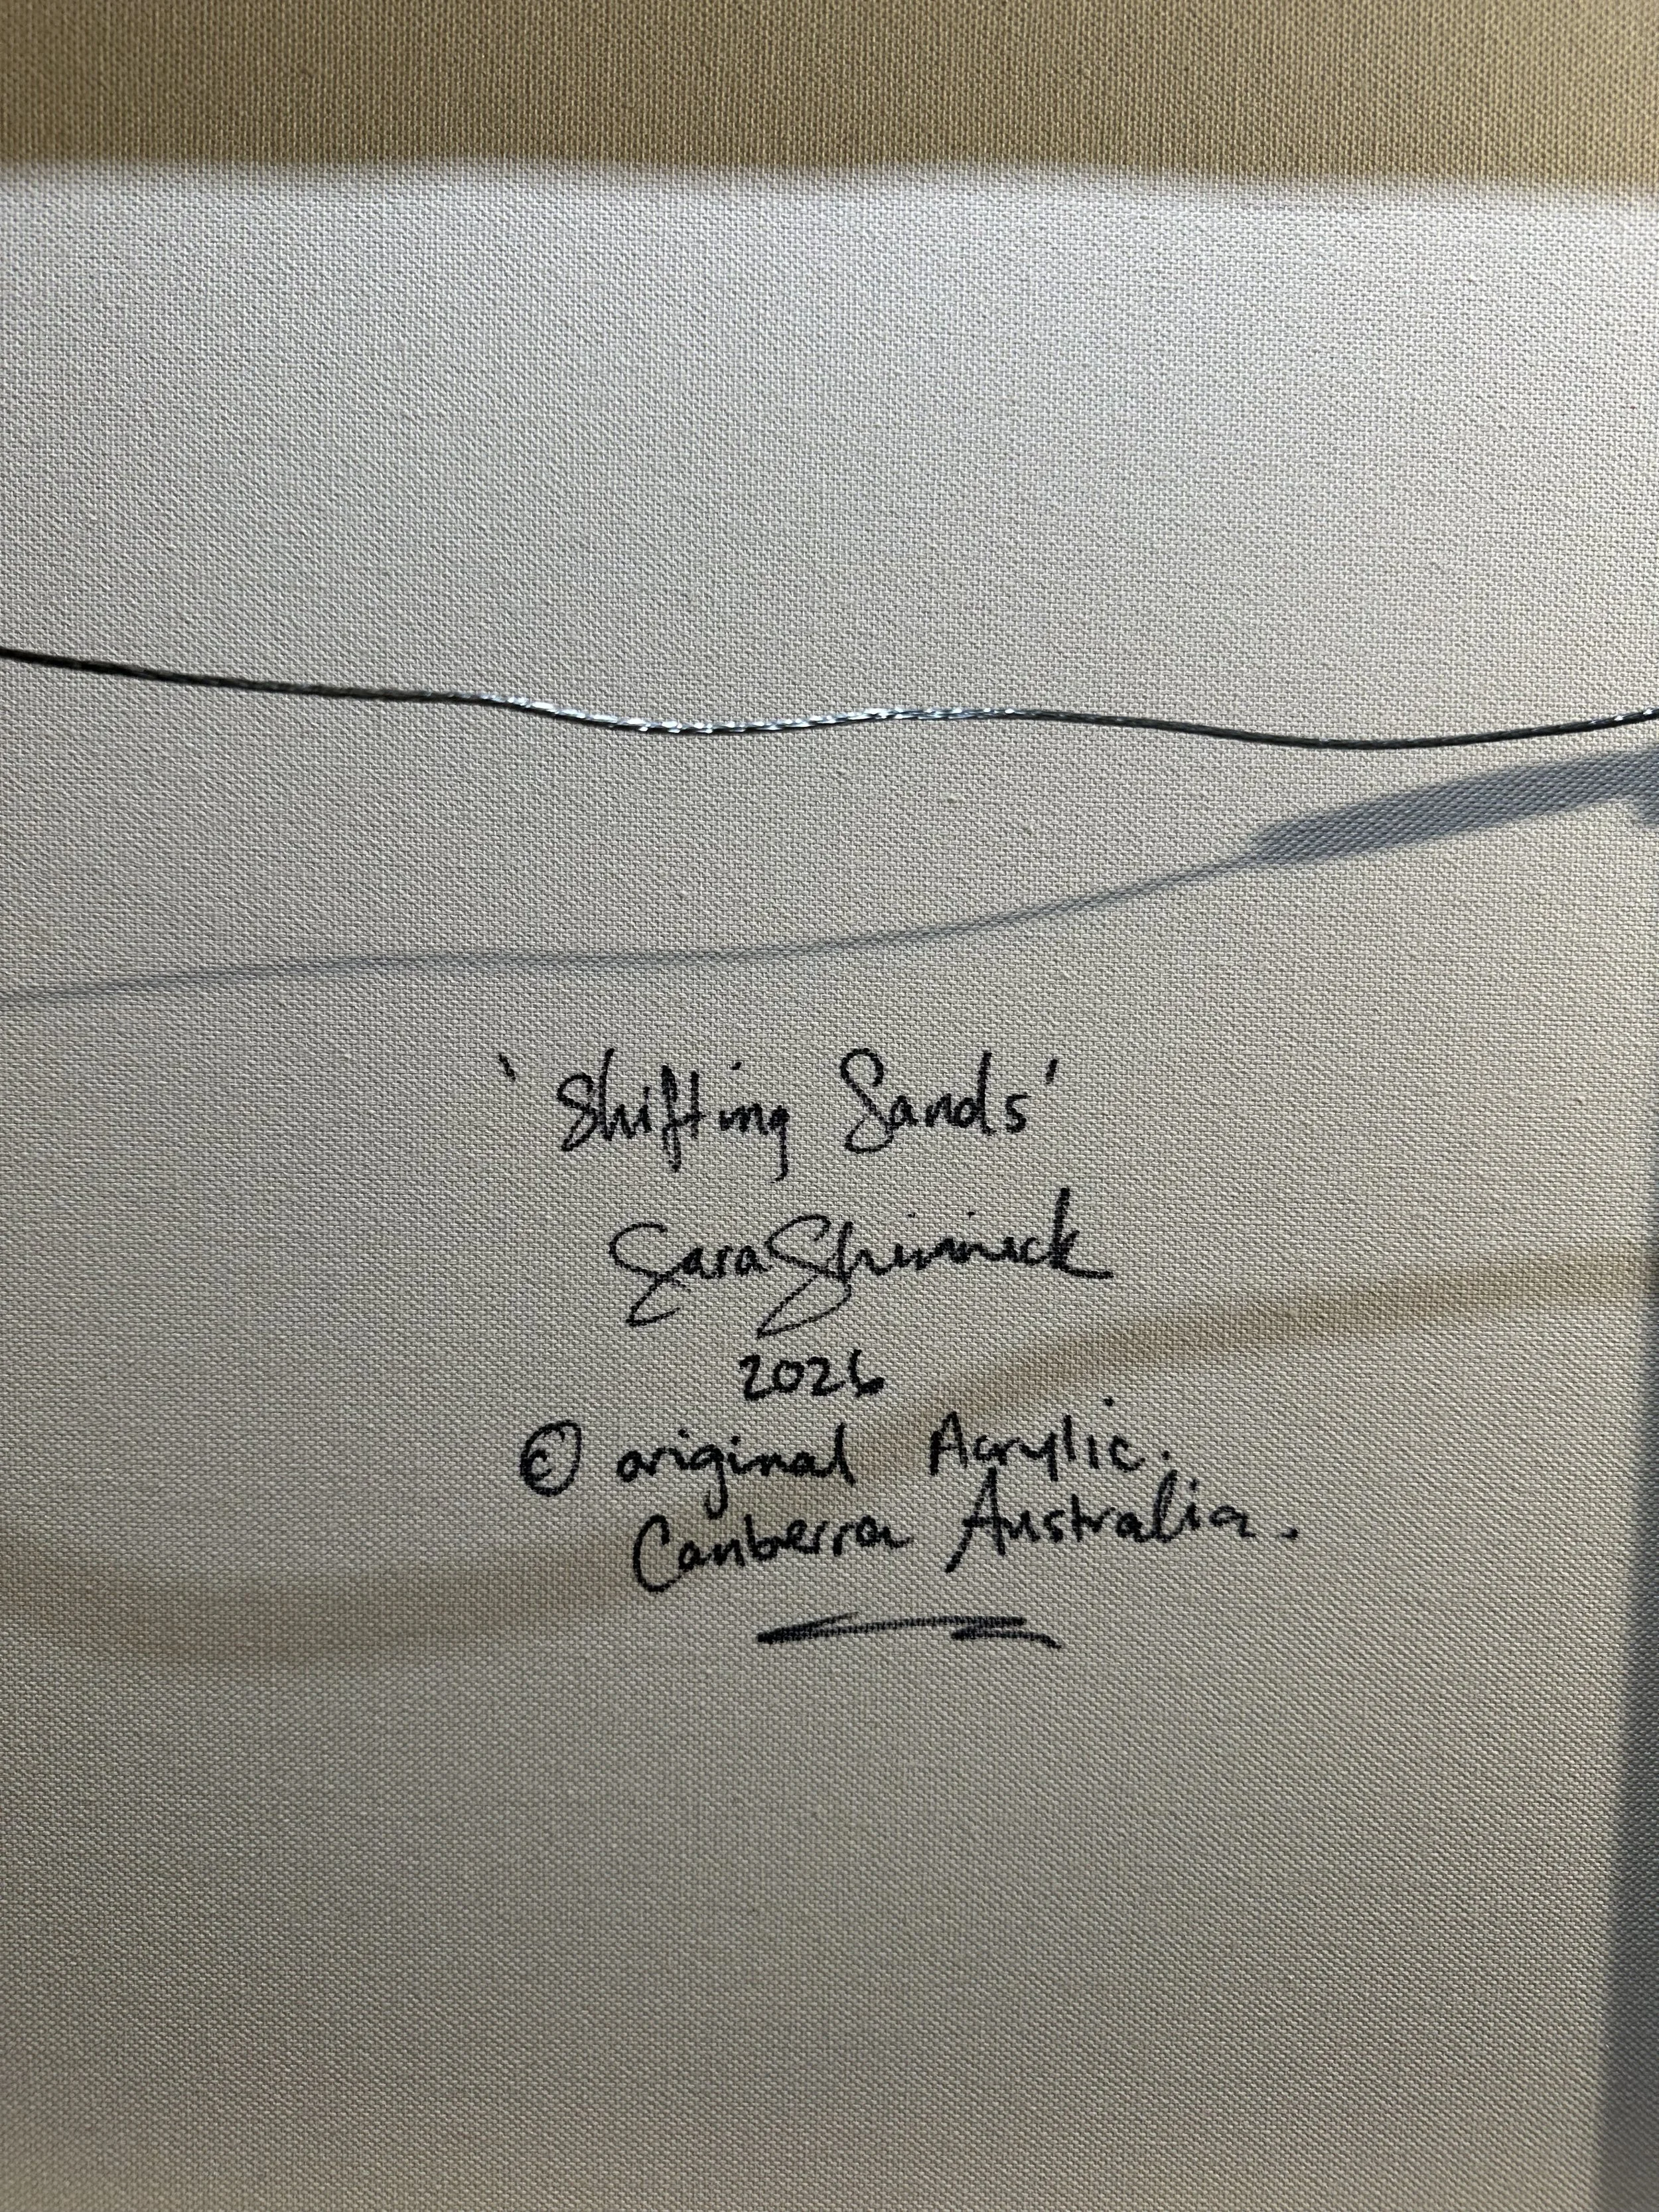 'Shifting Sands'
Sara
2026
© original Acrylic.
Canberra Australia.